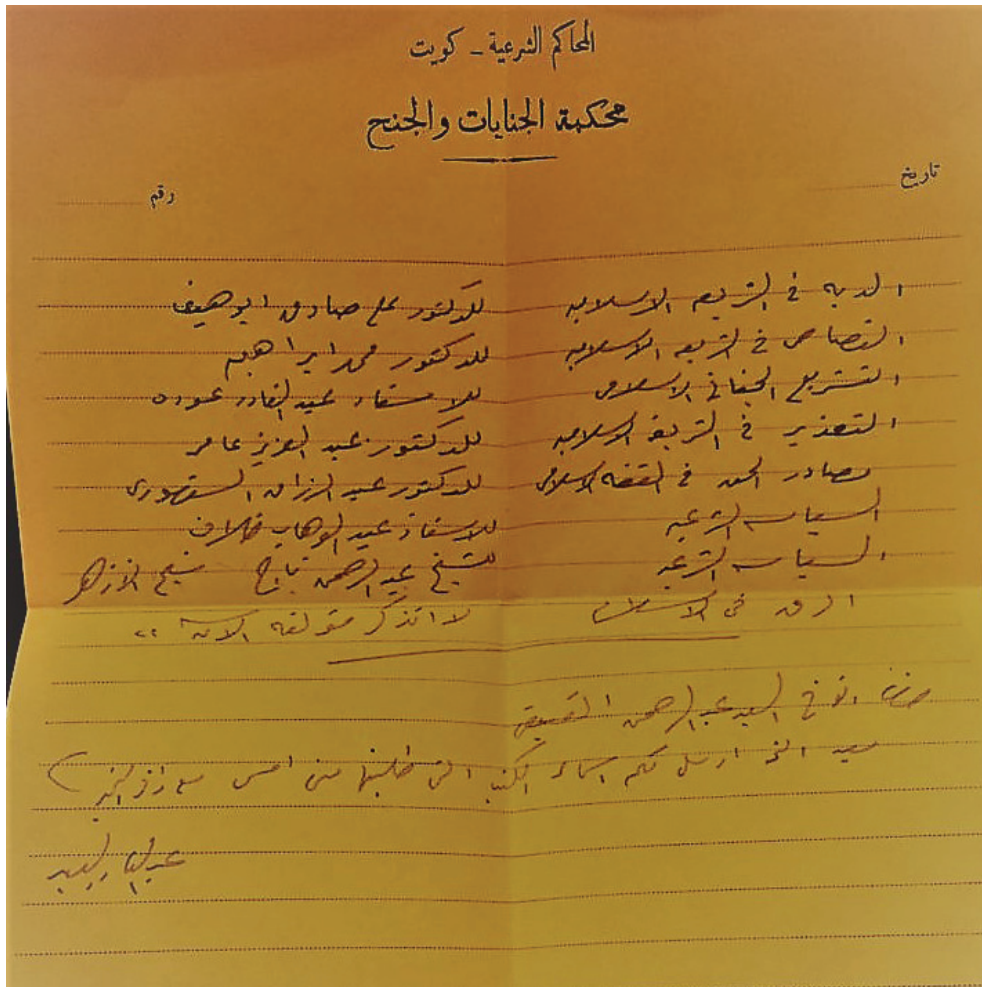 المحاكم الشرعية - كويت
محكمة الجنايات والجنح
تاريخ ........ رقم ........
الدية في الشريعة الاسلاميه للدكتور علي صادق ابو هيف
القصاص في الشريعه الاسلاميه للدكتور محمد ابراهيم
التشريع الجنائي الاسلامي للاستاذ عبد القادر عوده
التعذير في الشريعة الاسلاميه للدكتور عبد العزيز عامر
مصادر الحق في الفقه الاسلامي للدكتور عبد الرزاق السنهوري
السياسه الشرعيه للاستاذ عبد الوهاب خلاف
السياسه الشرعيه للشيخ عبد الرحمن تاج شيخ الازهر
الرق في الاسلام لا اتذكر مؤلفه الان ؟؟
الاخ السيد عبد الرحمن
ارسل لكم اسماء الكتب التي طلبتها مني امس مع